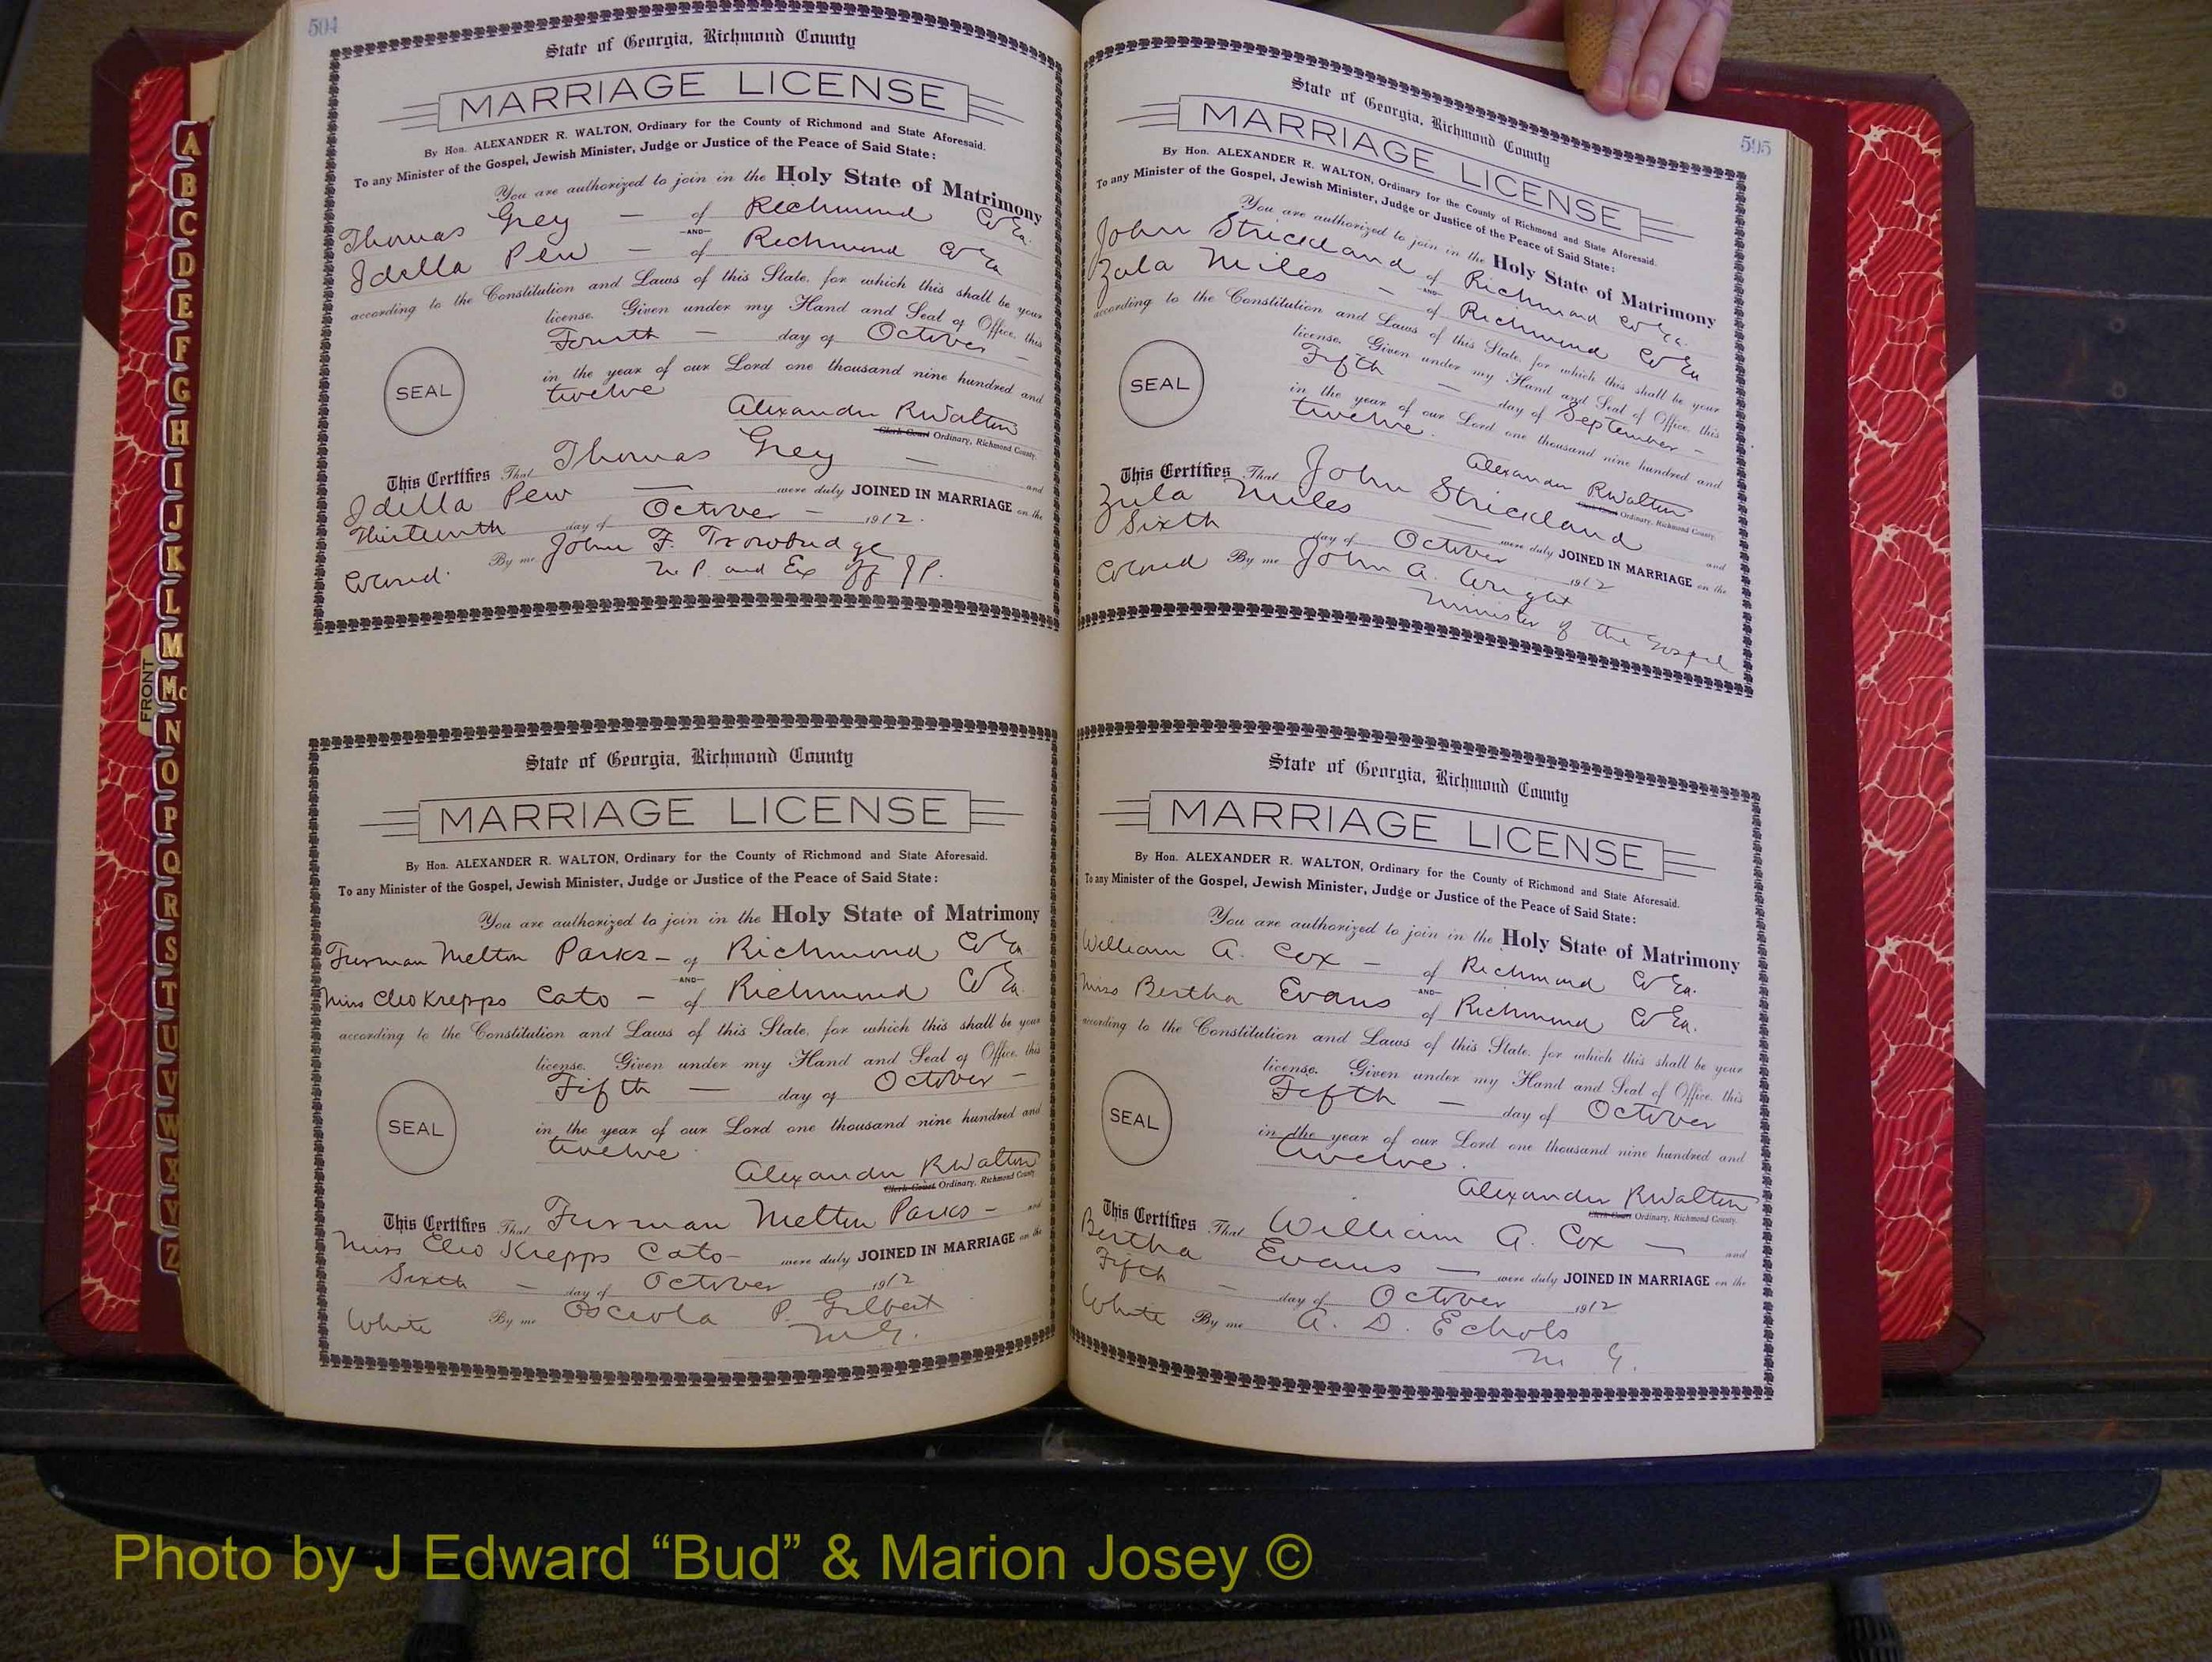 504
State of Georgia, Richmond County
MARRIAGE LICENSE
By Hon. ALEXANDER R. WALTON, Ordinary for the County of Richmond and State Aforesaid.
To any Minister of the Gospel, Jewish Minister, Judge or Justice of the Peace of Said State:
You are authorized to join in the Holy State of Matrimony
Thomas Grey — of Richmond Co Ga.
-AND-
Idella Pew — of Richmond Co Ga
according to the Constitution and Laws of this State, for which this shall be your
license. Given under my Hand and Seal of Office, this
Fourth — day of October —
in the year of our Lord one thousand nine hundred and
SEAL
twelve
Alexander R Walton
Clerk Court Ordinary, Richmond County.
This Certifies That Thomas Grey — and
Idella Pew — were duly JOINED IN MARRIAGE on the
Thirteenth day of October — 1912.
Colored. By me John F. Trowbridge
N. P. and Ex Off J P.
State of Georgia, Richmond County
MARRIAGE LICENSE
By Hon. ALEXANDER R. WALTON, Ordinary for the County of Richmond and State Aforesaid.
To any Minister of the Gospel, Jewish Minister, Judge or Justice of the Peace of Said State:
You are authorized to join in the Holy State of Matrimony
Furman Melton Parks — of Richmond Co Ga
-AND-
Miss Cleo Krepps Cato — of Richmond Co Ga.
according to the Constitution and Laws of this State, for which this shall be your
license. Given under my Hand and Seal of Office, this
Fifth — day of October —
SEAL
in the year of our Lord one thousand nine hundred and
twelve
Alexander R Walton
Clerk Court Ordinary, Richmond County
This Certifies That Furman Melton Parks — and
Miss Cleo Krepps Cato — were duly JOINED IN MARRIAGE on the
Sixth — day of October 1912
White By me Osceola P. Gilbert
M.G.
595
State of Georgia, Richmond County
MARRIAGE LICENSE
By Hon. ALEXANDER R. WALTON, Ordinary for the County of Richmond and State Aforesaid.
To any Minister of the Gospel, Jewish Minister, Judge or Justice of the Peace of Said State:
You are authorized to join in the Holy State of Matrimony
John Strickland of Richmond Co Ga.
-AND-
Zula Miles — of Richmond Co Ga
according to the Constitution and Laws of this State, for which this shall be your
license. Given under my Hand and Seal of Office, this
Fifth — day of September —
SEAL
in the year of our Lord one thousand nine hundred and
twelve.
Alexander R Walton
Clerk Court Ordinary, Richmond County.
This Certifies That John Strickland and
Zula Miles — were duly JOINED IN MARRIAGE on the
Sixth day of October 1912
Colored By me John A. Wright
Minister of the Gospel
State of Georgia, Richmond County
MARRIAGE LICENSE
By Hon. ALEXANDER R. WALTON, Ordinary for the County of Richmond and State Aforesaid.
To any Minister of the Gospel, Jewish Minister, Judge or Justice of the Peace of Said State:
You are authorized to join in the Holy State of Matrimony
William A. Cox — of Richmond Co Ga.
-AND-
Miss Bertha Evans of Richmond Co Ga.
according to the Constitution and Laws of this State, for which this shall be your
license. Given under my Hand and Seal of Office, this
Fifth — day of October
SEAL
in the year of our Lord one thousand nine hundred and
twelve.
Alexander R Walton
Clerk Court Ordinary, Richmond County.
This Certifies That William A. Cox — and
Bertha Evans — were duly JOINED IN MARRIAGE on the
Fifth — day of October 1912
White By me A. D. Echols
M G.
FRONT
A
B
C
D
E
F
G
H
I
J
K
L
M
Mc
N
O
P
Q
R
S
T
U
V
W
X
Y
Z
Photo by J Edward “Bud” & Marion Josey ©